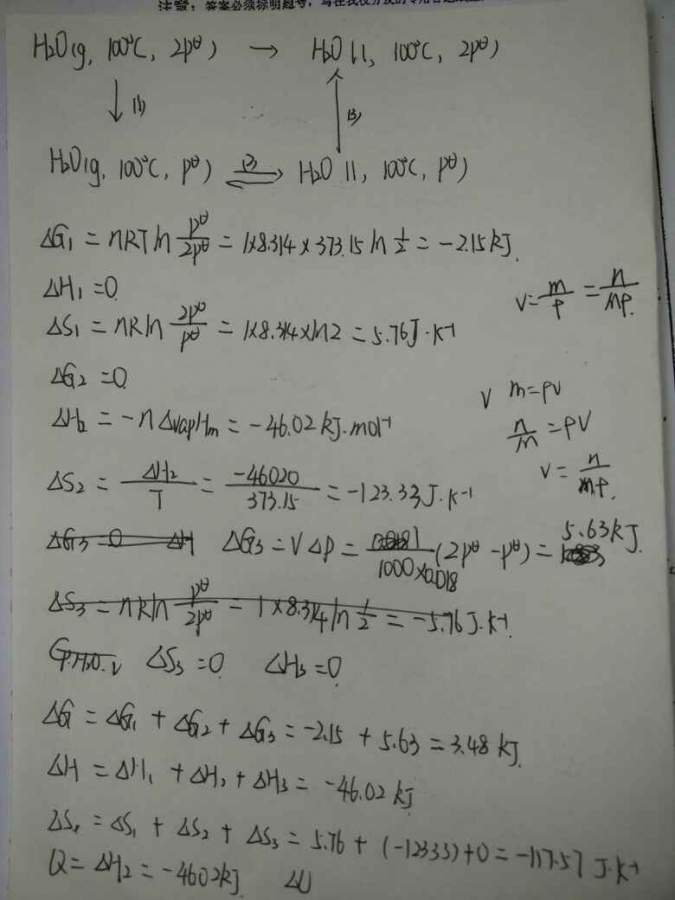 注意：答案必须标明题号，
H₂O(g, 100°C, 2p^θ) → H₂O(l, 100°C, 2p^θ)
↓(1) ↑(3)
H₂O(g, 100°C, p^θ) (2)⇌ H₂O(l, 100°C, p^θ)
ΔG₁ = nRT ln p^θ/2p^θ = 1×8.314×373.15 ln 1/2 = -2.15kJ.
ΔH₁ = 0
V = m/ρ = n/Mρ.
ΔS₁ = nR ln 2p^θ/p^θ = 1×8.314×ln2 = 5.76J·K⁻¹
ΔG₂ = 0
V m=ρV
ΔH₂ = -nΔvapHm = -46.02 kJ.mol⁻¹
n/M = ρV
V = n/Mρ.
ΔS₂ = ΔH₂/T = -46020/373.15 = -123.33J·K⁻¹
ΔG₃ = 0 ΔH ΔG₃ = VΔp = /1000×0.018 (2p^θ - p^θ) = 5.63kJ.
ΔS₃ = nR ln p^θ/2p^θ = 1×8.314 ln 1/2 = -5.76J·K⁻¹.
ΔS₃ = 0 ΔH₃ = 0
ΔG = ΔG₁ + ΔG₂ + ΔG₃ = -2.15 + 5.63 = 3.48 kJ.
ΔH = ΔH₁ + ΔH₂ + ΔH₃ = -46.02 kJ
ΔS = ΔS₁ + ΔS₂ + ΔS₃ = 5.76 + (-123.33)+0 = -117.57 J·K⁻¹
Q = ΔH₂ = -46.02kJ ΔU